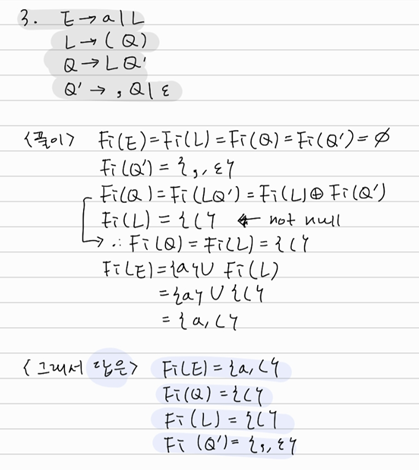 3. E → a | L
L → ( Q )
Q → L Q'
Q' → , Q | ε
<풀이> Fi(E) = Fi(L) = Fi(Q) = Fi(Q') = ∅
Fi(Q') = {, , ε}
Fi(Q) = Fi(LQ') = Fi(L) ⊕ Fi(Q')
Fi(L) = { ( } ← not null
∴ Fi(Q) = Fi(L) = { ( }
Fi(E) = {a} ∪ Fi(L)
= {a} ∪ { ( }
= { a, ( }
<그래서 답은> Fi(E) = {a, ( }
Fi(Q) = { ( }
Fi(L) = { ( }
Fi(Q') = {, , ε}